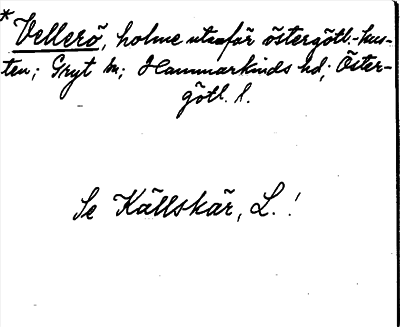 *Vellerö, holme utanför östergötl.-kus-
ten; Gryt sn; Hammarkinds hd; Öster-
götl. l.
Se Källskär, L.!